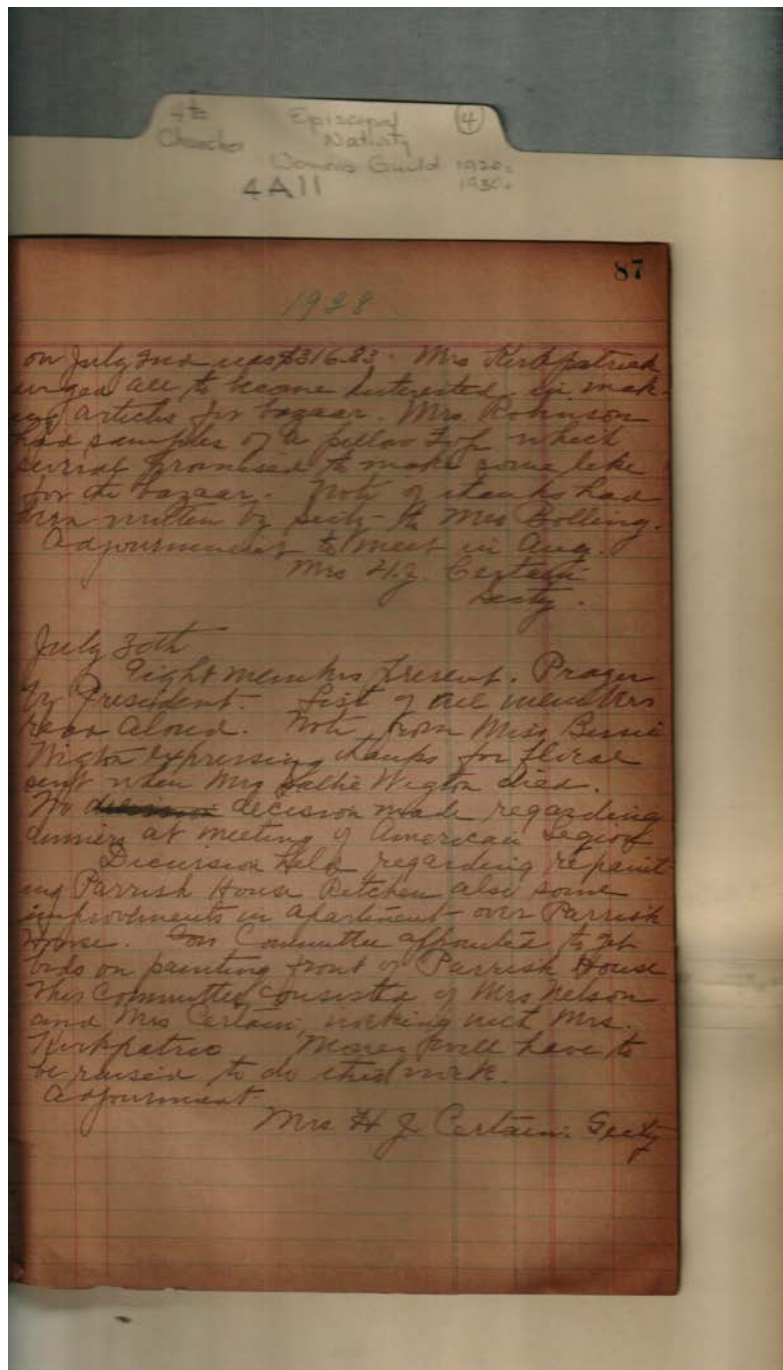 4th Episcopal (4)
Churches Nativity
Womens Guild 1920s
4A11 1930s
87
1928
on July 2nd was $316.83. Mrs Kirkpatrick
urged all to become interested in mak-
ing articles for bazaar. Mrs. Robinson
had samples of a pillow top which
several promised to make some like
for the bazaar. Note of thanks had
been written by Secty to Mrs Bolling.
Adjournment to meet in Aug.
Mrs H.J. Certain
Secty.
July 30th
Eight members present. Prayer
by President. List of all members
read aloud. Note from Miss Bessie
Wigton expressing thanks for floral
sent when Mrs Sallie Wigton died.
No decision made regarding
dinners at meeting of American Legion
Dicussion held regarding repaint-
ing Parrish House Kitchen also some
improvements in apartment over Parrish
House. Committee appointed to get
bids on painting front of Parrish House
This Committee consisted of Mrs Nelson
and Mrs Certain, working with Mrs.
Kirkpatric Money will have to
be raised to do this work.
Adjournment
Mrs H J Certain. Secty